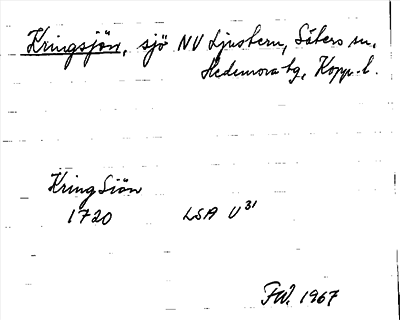 Kringsjön, sjö NV Ljustern, Säters sn,
Hedemora tg, Kopp. l.
Kring Siön
1720 LSA U³¹
FW. 1967